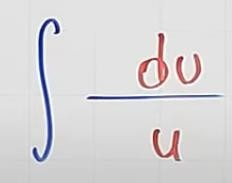 ∫ du/u